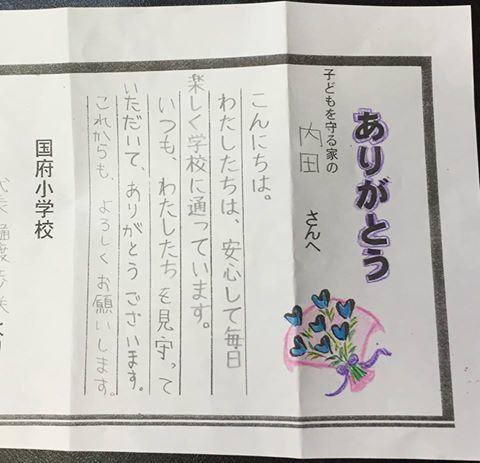 ありがとう
子どもを守る家の
内田 さんへ
こんにちは。
わたしたちは、安心して毎日
楽しく学校に通っています。
いつも、わたしたちを見守って
いただいて、ありがとうございます。
これからも、よろしくお願いします。
国府小学校
代表